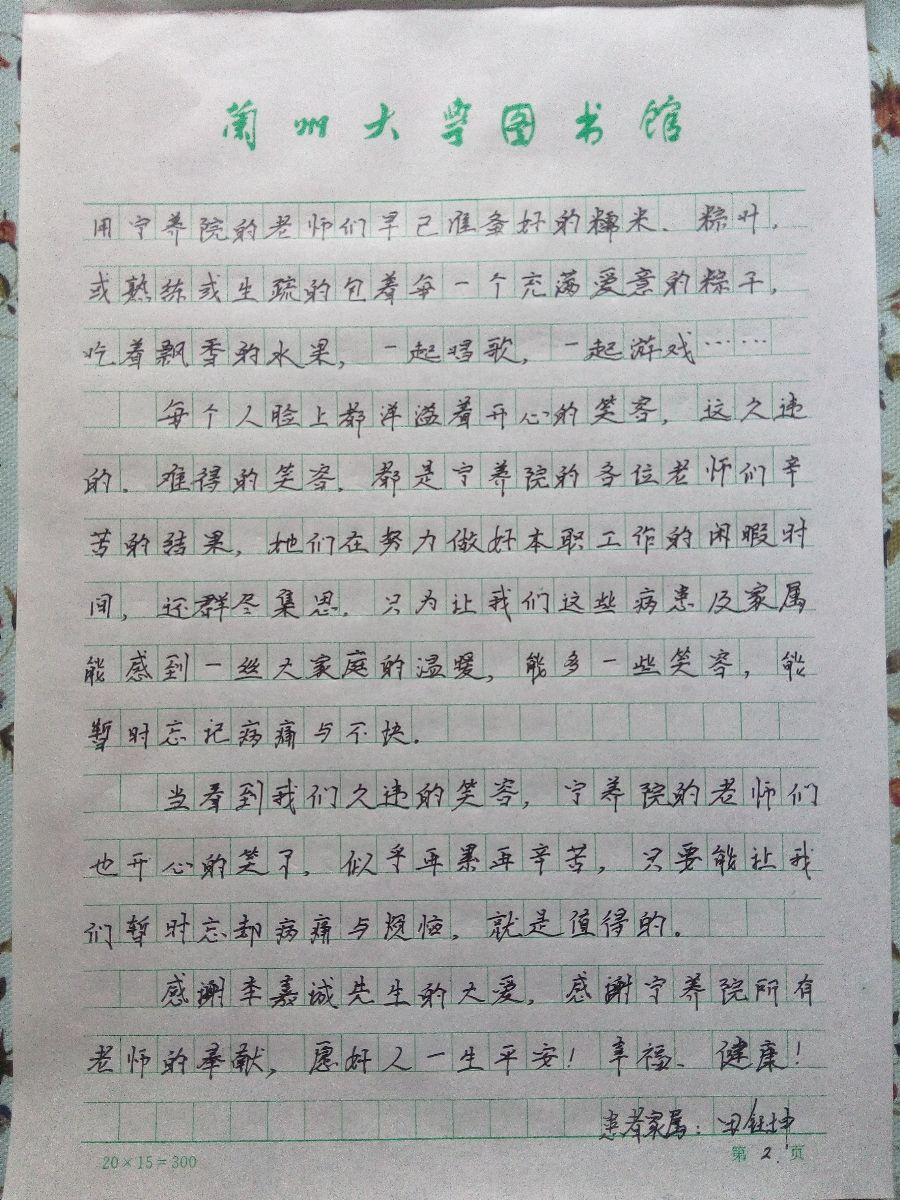 兰州大学图书馆
用宁养院的老师们早已准备好的糯米、粽叶，
或熟练或生疏的包着每一个充满爱意的粽子，
吃着飘香的水果，一起唱歌，一起游戏……
每个人脸上都洋溢着开心的笑容，这久违
的、难得的笑容，都是宁养院的各位老师们辛
苦的结果，她们在努力做好本职工作的闲暇时
间，还群策集思，只为让我们这些病患及家属
能感到一丝大家庭的温暖，能多一些笑容，能
暂时忘记病痛与不快。
当看到我们久违的笑容，宁养院的老师们
也开心的笑了，似乎再累再辛苦，只要能让我
们暂时忘却病痛与烦恼，就是值得的。
感谢李嘉诚先生的大爱，感谢宁养院所有
老师的奉献，愿好人一生平安！幸福、健康！
患者家属：田钰坤
20×15=300
第 2 页